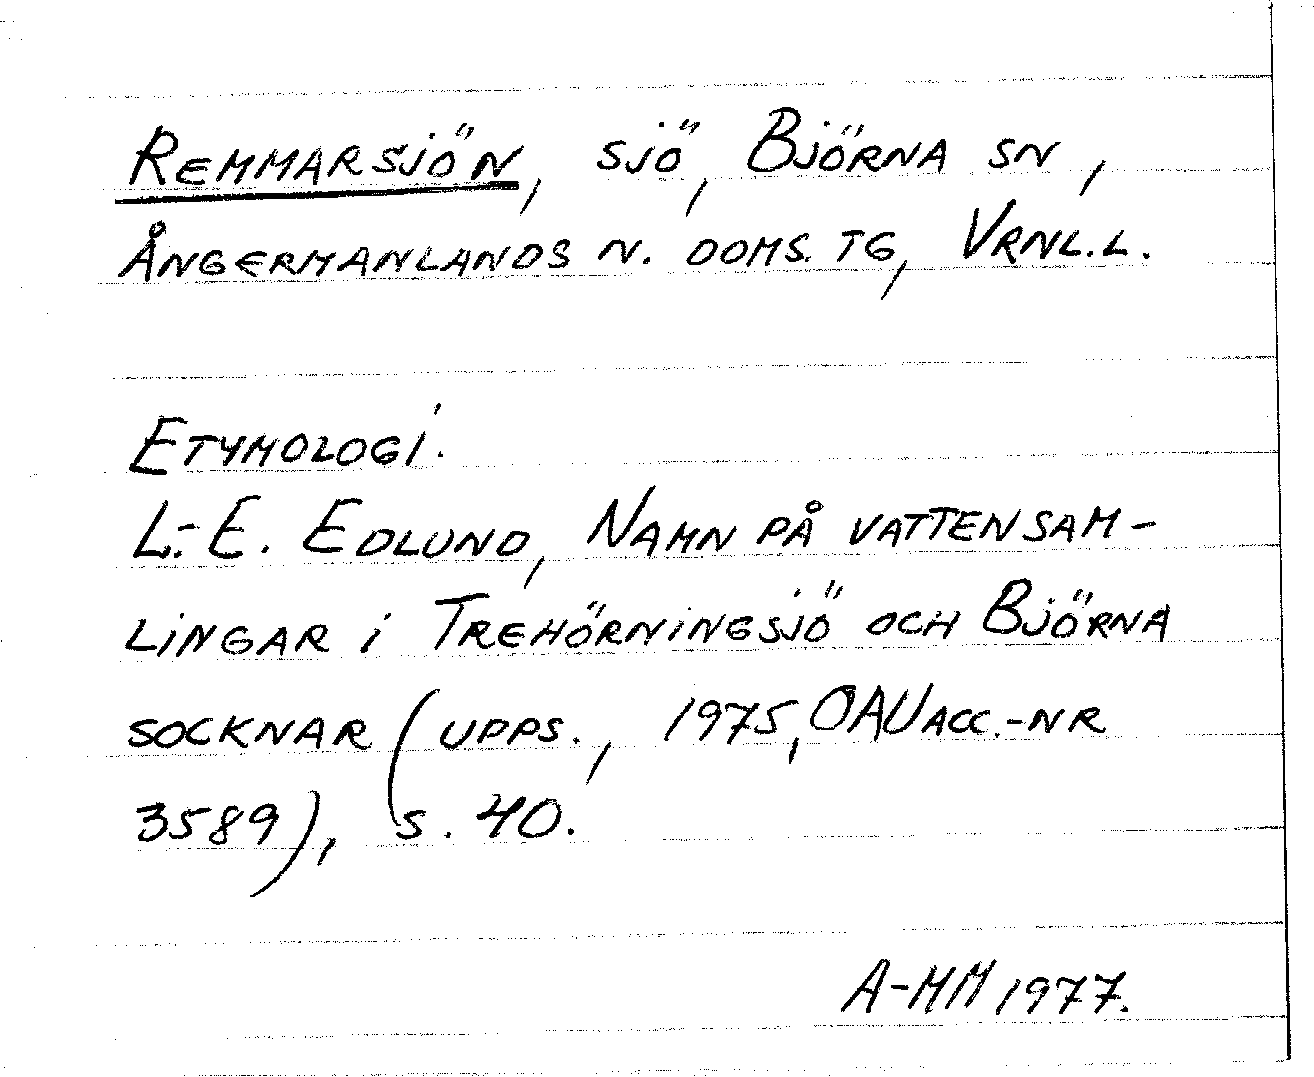 Remmarsjön, sjö, Björna sn,
Ångermanlands n. doms. tg, Vrnl.l.
Etymologi.
L.-E. Edlund, Namn på vattensam-
lingar i Trehörningsjö och Björna
socknar (Upps., 1975, OAU acc.-nr
3589), s. 40.
A-MM 1977.